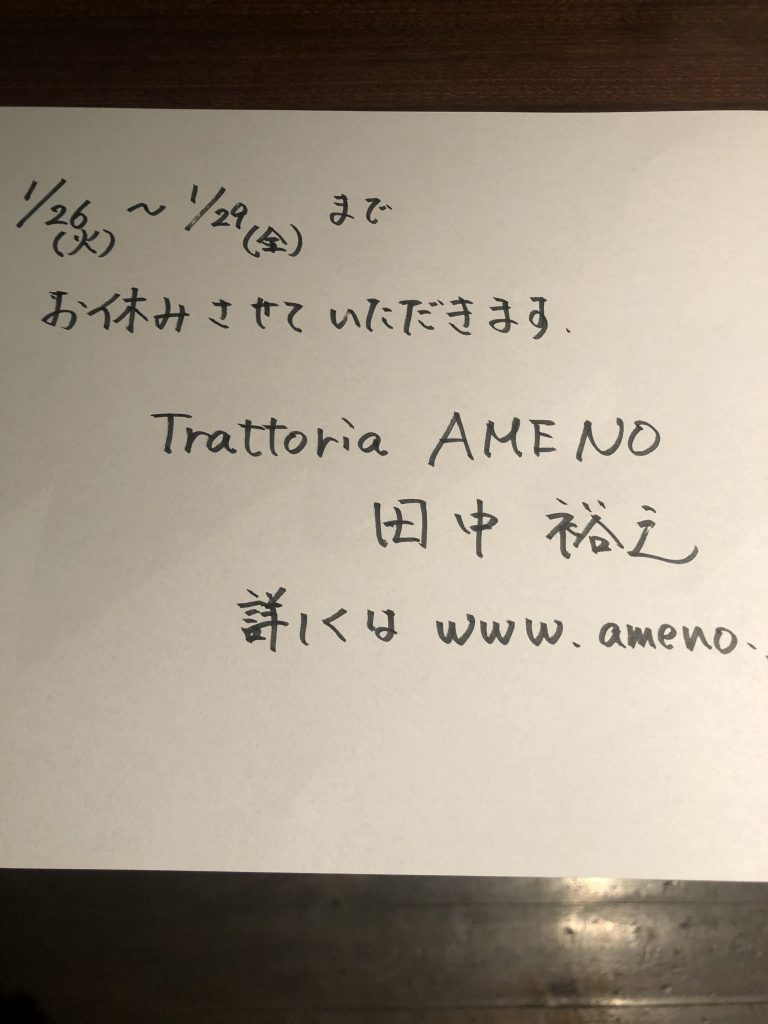 1/26(火)～1/29(金)まで
お休みさせていただきます.
Trattoria AMENO
田中 裕之
詳しくは www.ameno.